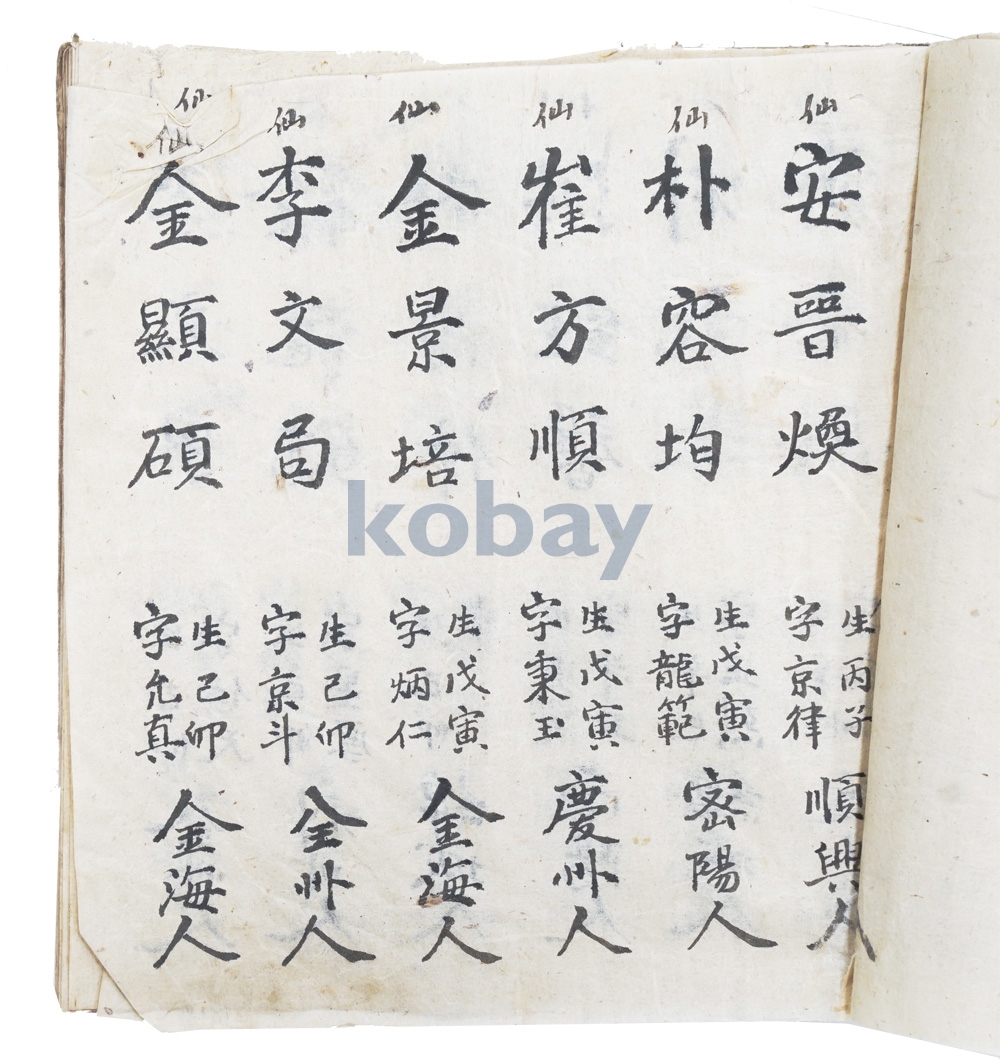 仙
安晉煥
生丙子
字京律
順興人
仙
朴容均
生戊寅
字龍範
密陽人
仙
崔方順
生戊寅
字秉玉
慶州人
仙
金景培
生戊寅
字炳仁
金海人
仙
李文局
生己卯
字京斗
全州人
仙
仙
金顯碩
生己卯
字允真
金海人
kobay